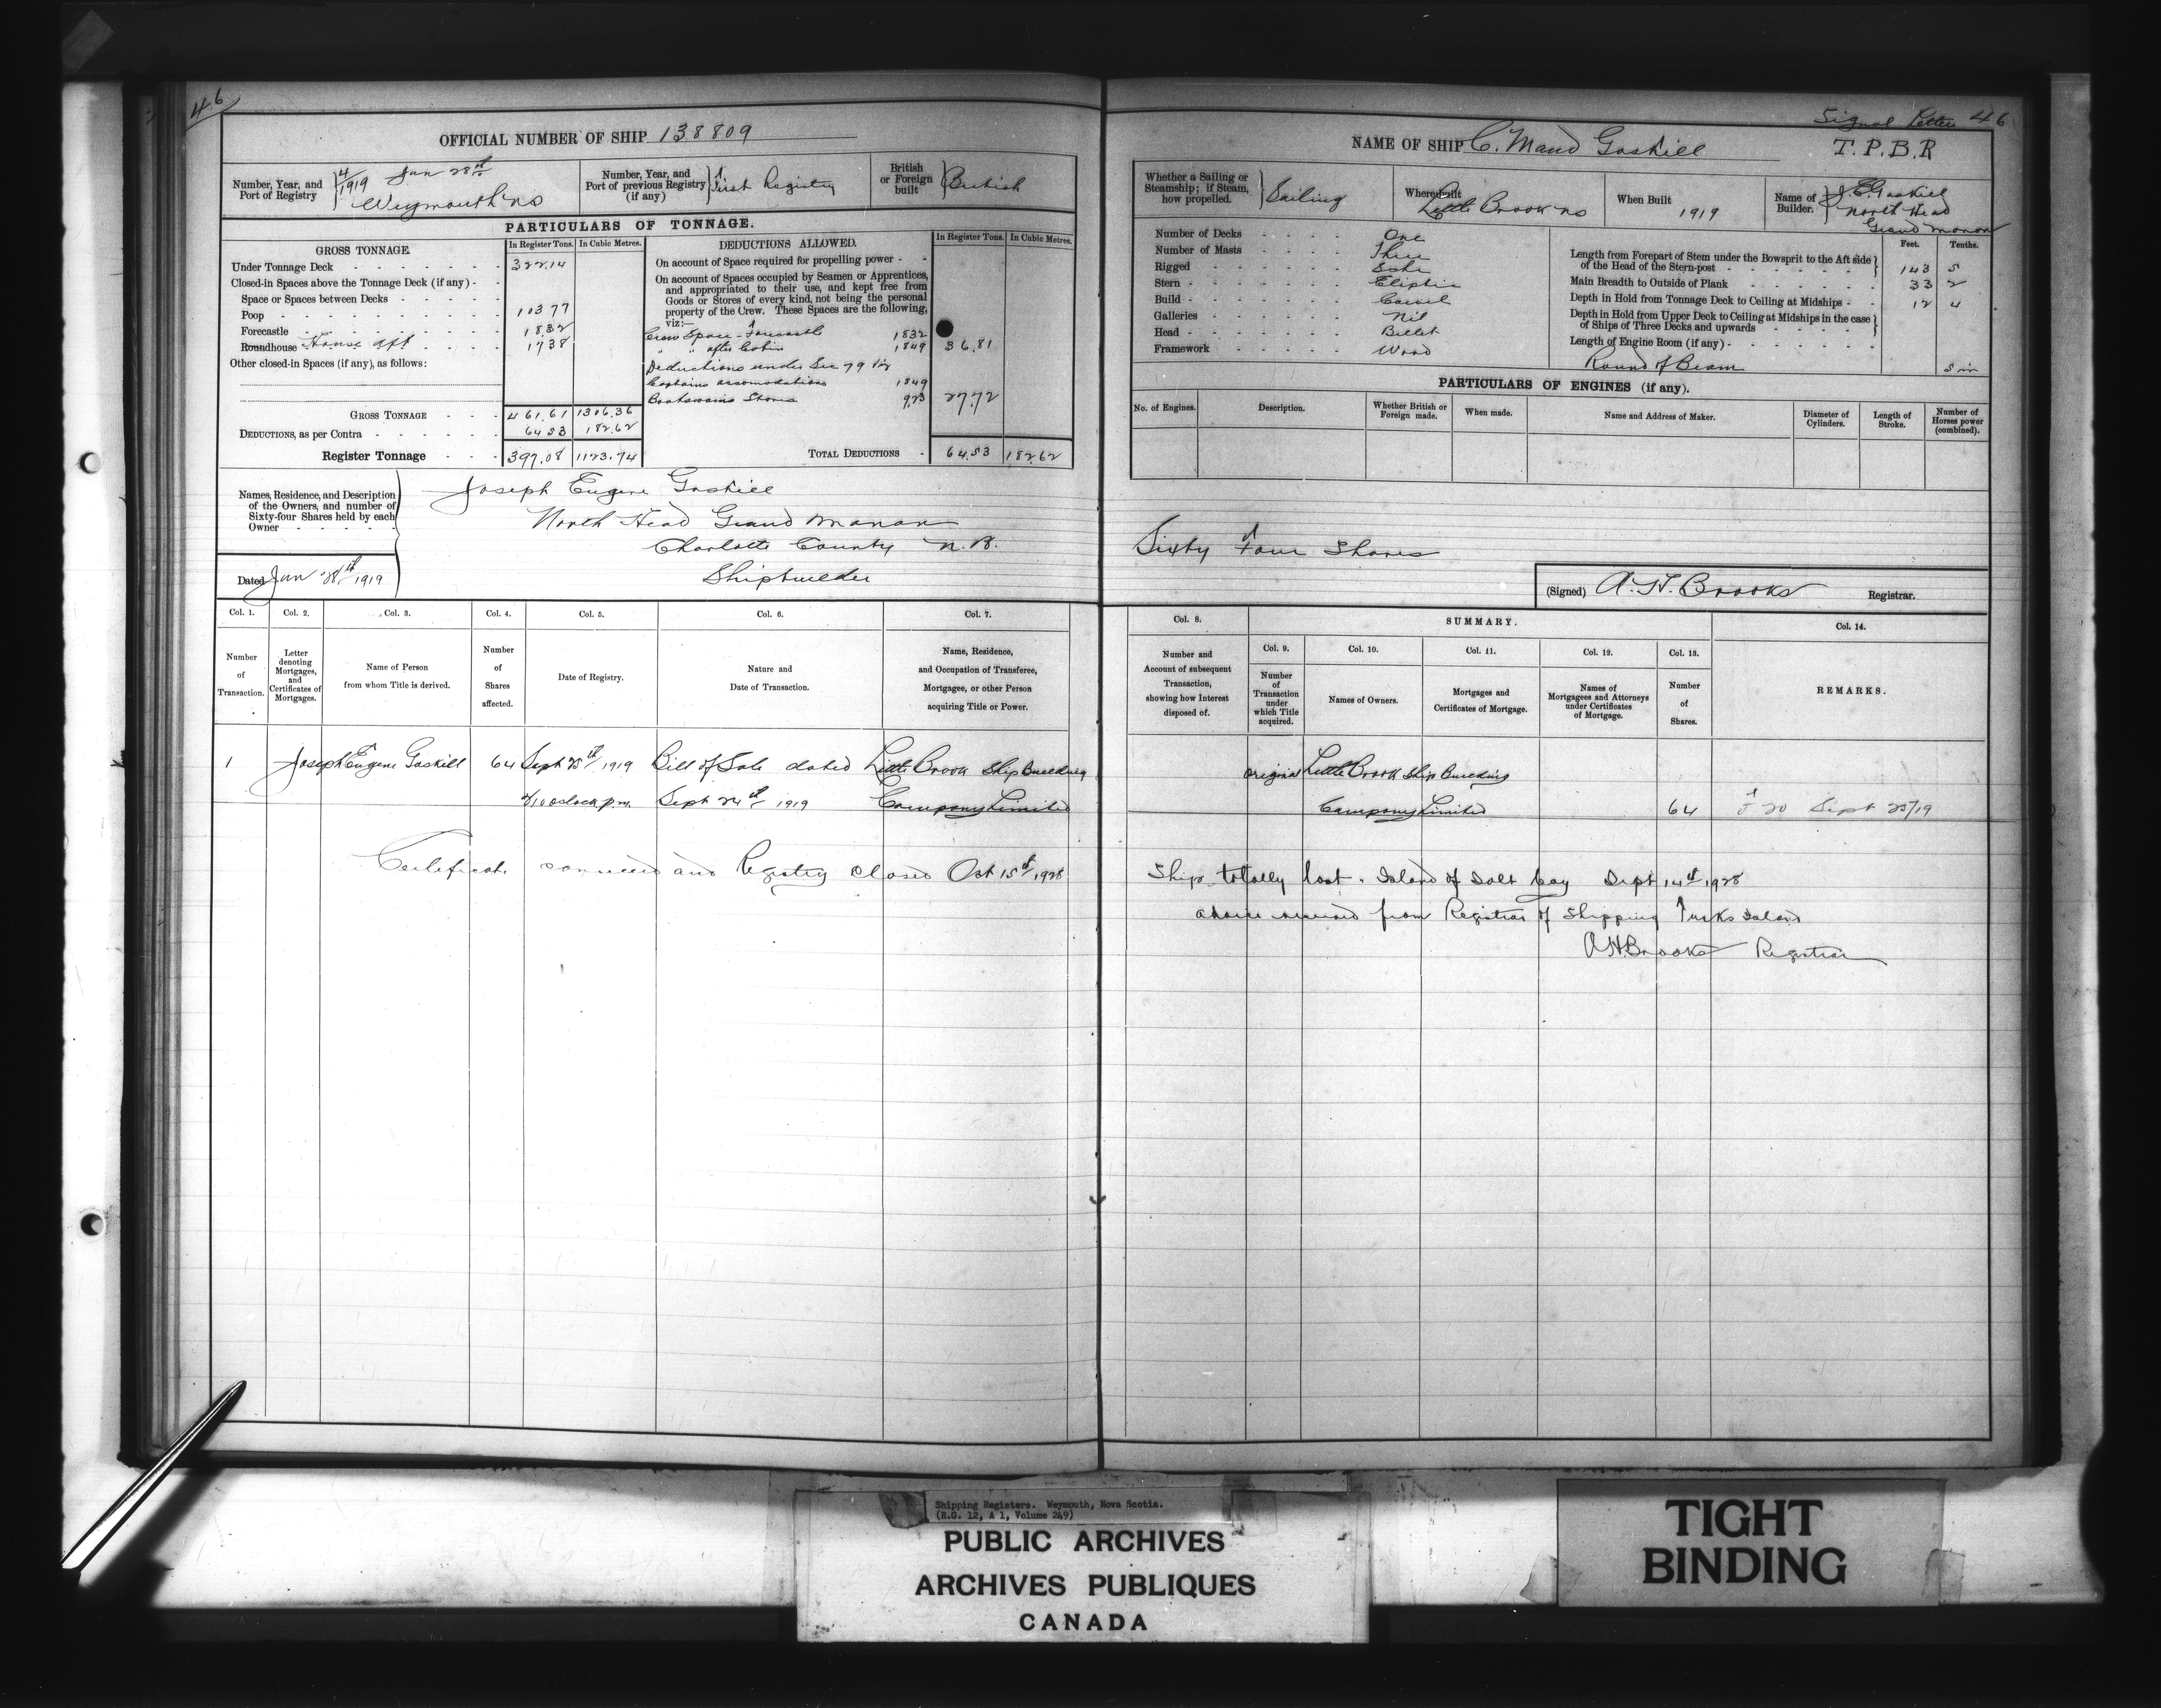 46
OFFICIAL NUMBER OF SHIP 138809
Number, Year, and Port of Registry 4/1919 Jun 28th Weymouth NS
Number, Year, and Port of previous Registry (if any) First Registry
British or Foreign built British
PARTICULARS OF TONNAGE.
GROSS TONNAGE. In Register Tons. In Cubic Metres.
Under Tonnage Deck 322.14
Closed-in Spaces above the Tonnage Deck (if any)
Space or Spaces between Decks
Poop 103 77
Forecastle 1832
Roundhouse House aft 1738
Other closed-in Spaces (if any), as follows:
GROSS TONNAGE 461.61 1306.36
DEDUCTIONS, as per Contra 64 53 182.62
Register Tonnage 397.08 1123.74
DEDUCTIONS ALLOWED. In Register Tons. In Cubic Metres.
On account of Space required for propelling power
On account of Spaces occupied by Seamen or Apprentices,
and appropriated to their use, and kept free from
Goods or Stores of every kind, not being the personal
property of the Crew. These Spaces are the following,
viz:—
Crew Space - Forecastle 1832
" " after Cabin 1849 36.81
Deductions under Sec 79 viz
Captains accomodations 1849
Boatswains Stores 9.23 27.72
TOTAL DEDUCTIONS 64.53 182.62
Names, Residence, and Description
of the Owners, and number of
Sixty-four Shares held by each
Owner
Joseph Eugene Gaskill
North Head Grand Manan
Charlotte County N.B.
Shipbuilder
Dated Jun 28th 1919
Col. 1. Col. 2. Col. 3. Col. 4. Col. 5. Col. 6. Col. 7.
Number of Transaction.
Letter denoting Mortgages, and Certificates of Mortgages.
Name of Person from whom Title is derived.
Number of Shares affected.
Date of Registry.
Nature and Date of Transaction.
Name, Residence, and Occupation of Transferee, Mortgagee, or other Person acquiring Title or Power.
1 Joseph Eugene Gaskill 64 Sept 25th 1919 Bill of Sale dated Little Brook Ship Building
o'clock p.m. Sept 24th 1919 Company Limited
Certificate and Registry closed Oct 15th 1928
Signal Letters 46
NAME OF SHIP C. Maud Gaskill T.P.B.R
Whether a Sailing or Steamship; if Steam, how propelled. Sailing
Where built Little Brook NS
When Built 1919
Name of Builder. J.E. Gaskill North Head Grand Manan
Number of Decks One
Number of Masts Three
Rigged Schr
Stern Eliptic
Build Carvel
Galleries Nil
Head Billet
Framework Wood
Feet. Tenths.
Length from Forepart of Stem under the Bowsprit to the Aft side
of the Head of the Stern-post 143 5
Main Breadth to Outside of Plank 33 2
Depth in Hold from Tonnage Deck to Ceiling at Midships 12 4
Depth in Hold from Upper Deck to Ceiling at Midships in the case
of Ships of Three Decks and upwards
Length of Engine Room (if any)
Round of Beam 5 in
PARTICULARS OF ENGINES (if any).
No. of Engines. Description. Whether British or Foreign made. When made. Name and Address of Maker. Diameter of Cylinders. Length of Stroke. Number of Horses power (combined).
Sixty Four Shares
(Signed) A. H. Brooks Registrar.
Col. 8. SUMMARY. Col. 14.
Col. 9. Col. 10. Col. 11. Col. 12. Col. 13.
Number and Account of subsequent Transaction, showing how Interest disposed of.
Number of Transaction under which Title acquired.
Names of Owners.
Mortgages and Certificates of Mortgage.
Names of Mortgagees and Attorneys under Certificates of Mortgage.
Number of Shares.
REMARKS.
original Little Brook Ship Building
Company Limited 64 20 Sept 25/19
Ship totally lost. Island of Salt Cay Sept 14th 1928
advice received from Registrar of Shipping Turks Island
A H Brooks Registrar
Shipping Registers. Weymouth, Nova Scotia.
(R.G. 12, A 1, Volume 249)
PUBLIC ARCHIVES
ARCHIVES PUBLIQUES
CANADA
TIGHT
BINDING